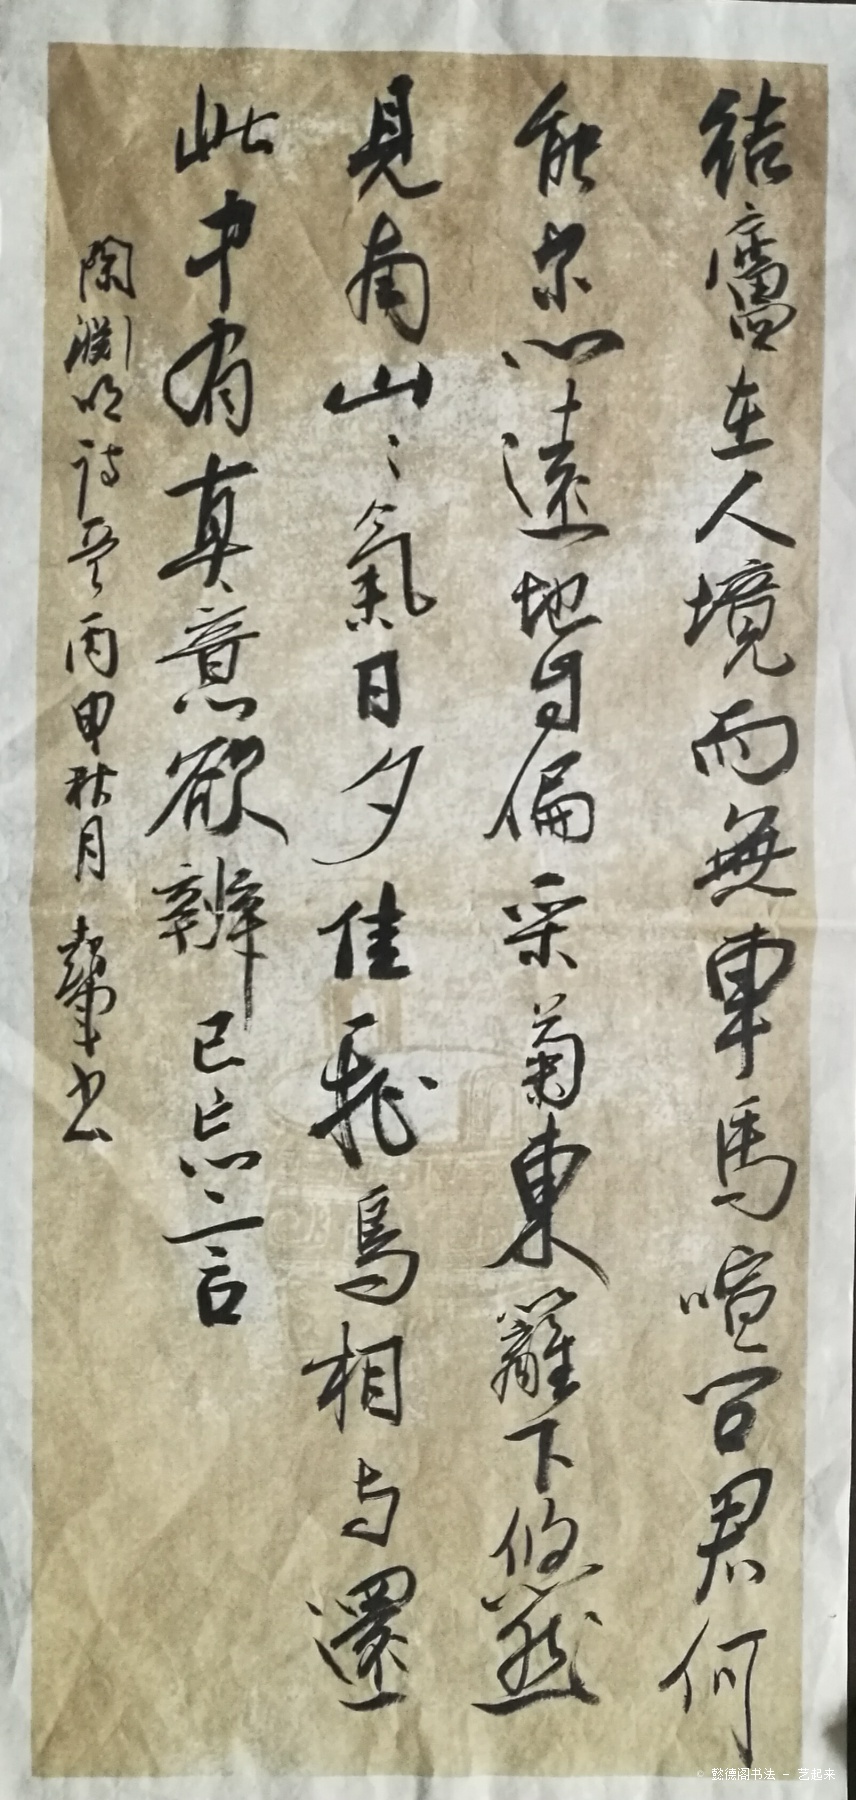 結廬在人境而無車馬喧问君何
能尔心遠地自偏采菊東籬下悠然
見南山〻氣日夕佳飛鳥相与還
此中有真意欲辨已忘言
陶淵明詩 丙申秋月 书
© 懿德阁书法 - 艺起来